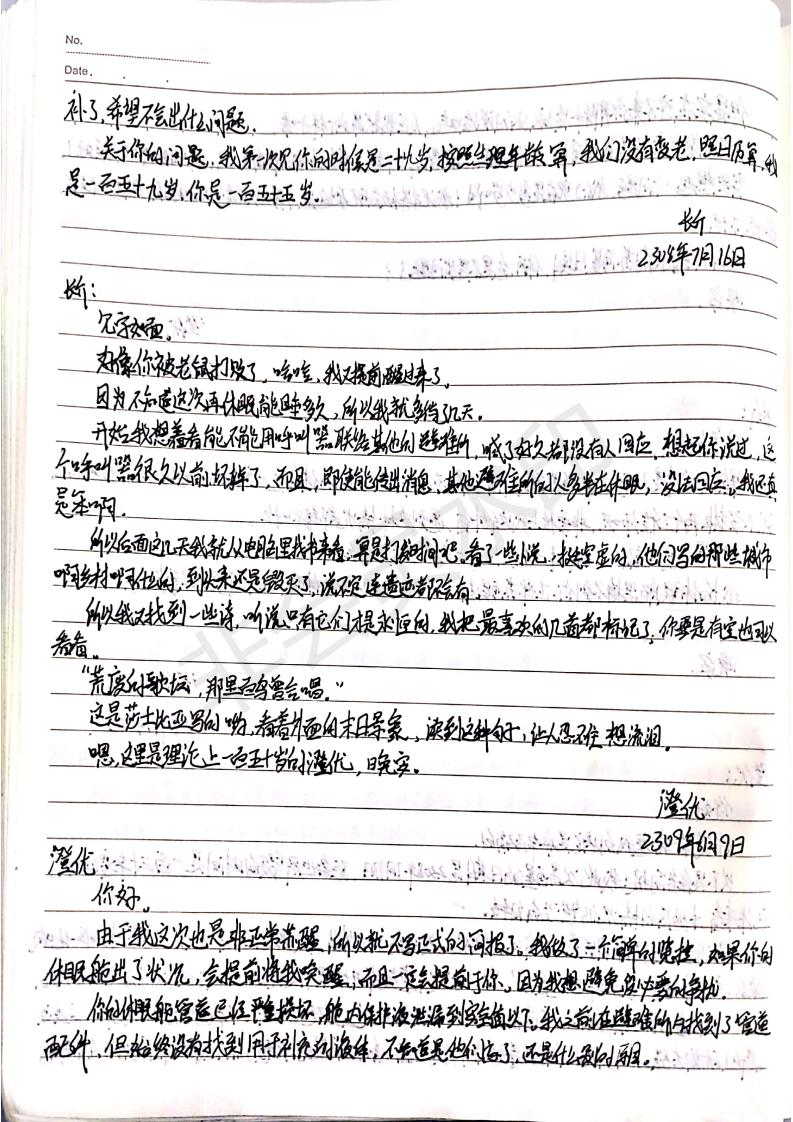 No.
Date.
补了,希望不会出什么问题。
关于你的问题,我第一次见你的时候是二十九岁,按照生理年龄算,我们没有变老,照日历算,我
是一百五十九岁,你是一百五十五岁。
长价
2308年7月16日
长价:
见字如面。
好像你被老鼠打败了,哈哈,我又提前醒过来了。
因为不知道这次再休眠能睡多久,所以我就多待了几天。
开始我想着看能不能用呼叫器联络其他的避难所,喊了好久都没有人回应,想起你说过,这
个呼叫器很久以前坏掉了,而且,即使能传出消息,其他避难所的人多半在休眠,没法回应。我还真
是笨啊。
所以后面这几天我就从电脑里找书来看,算是打发时间吧。看了一些小说,挺空虚的,他们写的那些城市
啊乡村啊什么的,到头来还是毁灭了,说不定连遗迹都不会有。
所以我又找到一些诗,听说只有它们才是永恒的,我把最喜欢的几首都标记了,你要是有空也可以
看看。
“荒废的歌坛,那里百鸟曾合唱。”
这是莎士比亚写的哟,看着外面的末日景象,读到这种句子,让人忍不住想流泪。
嗯,这里是理论上一百五十岁的澄优,晚安。
澄优
2309年6月9日
澄优
你好。
由于我这次也是非正常苏醒,所以就不写正式的简报了。我做了一个简单的晓控,如果你的
休眠舱出了状况,会提前将我唤醒,而且一定会提前于你,因为我想避免没必要的争执。
你的休眠舱管道已经严重损坏,舱内保护液泄漏到安全值以下。我之前在避难所内找到了管道
配件,但始终没有找到用于补充的液体,不知道是他们忘了,还是什么别的原因。
非会员水印